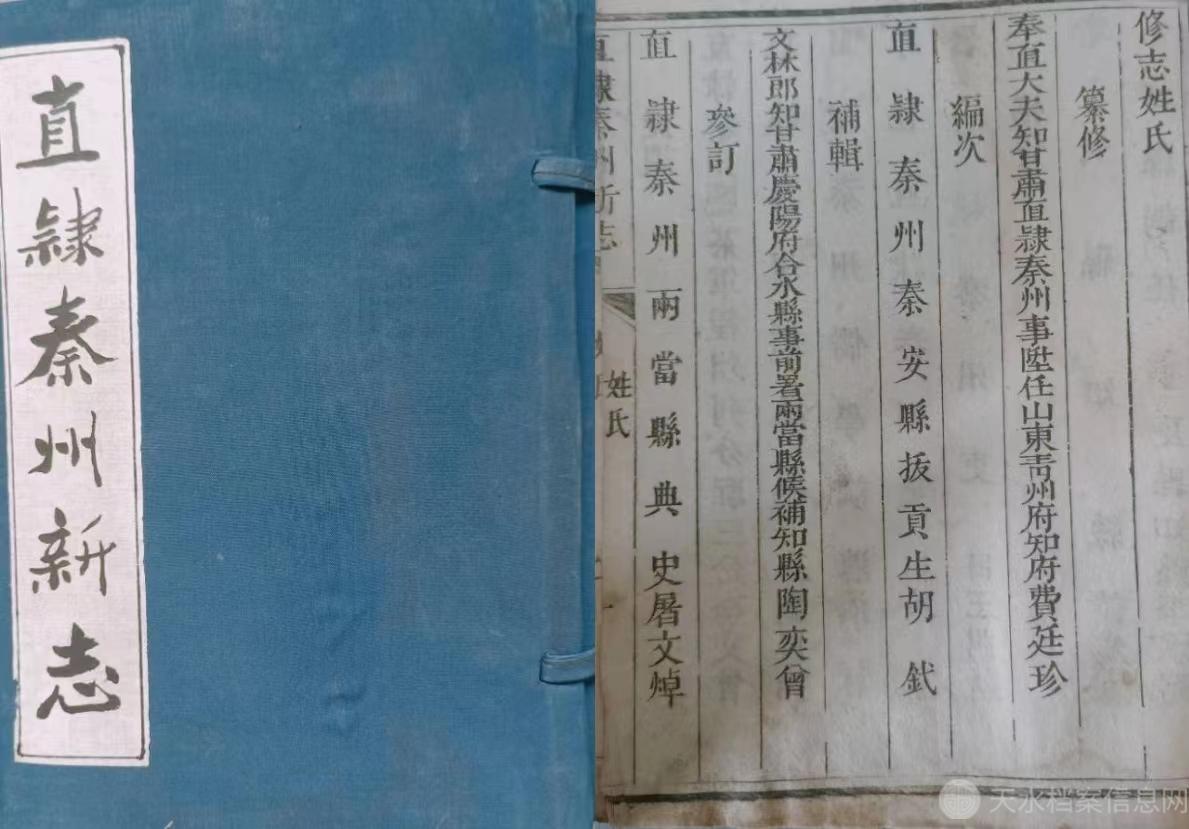 直隸秦州新志
修志姓氏
纂修
奉直大夫知甘肅直隸秦州事陞任山東青州府知府費廷珍
編次
直隸秦州秦安縣拔貢生胡釴
補輯
文林郎知甘肅慶陽府合水縣事前署兩當縣候補知縣陶奕曾
參訂
直隸秦州兩當縣典史屠文焯
直隸秦州新志
姓氏
天水档案信息网